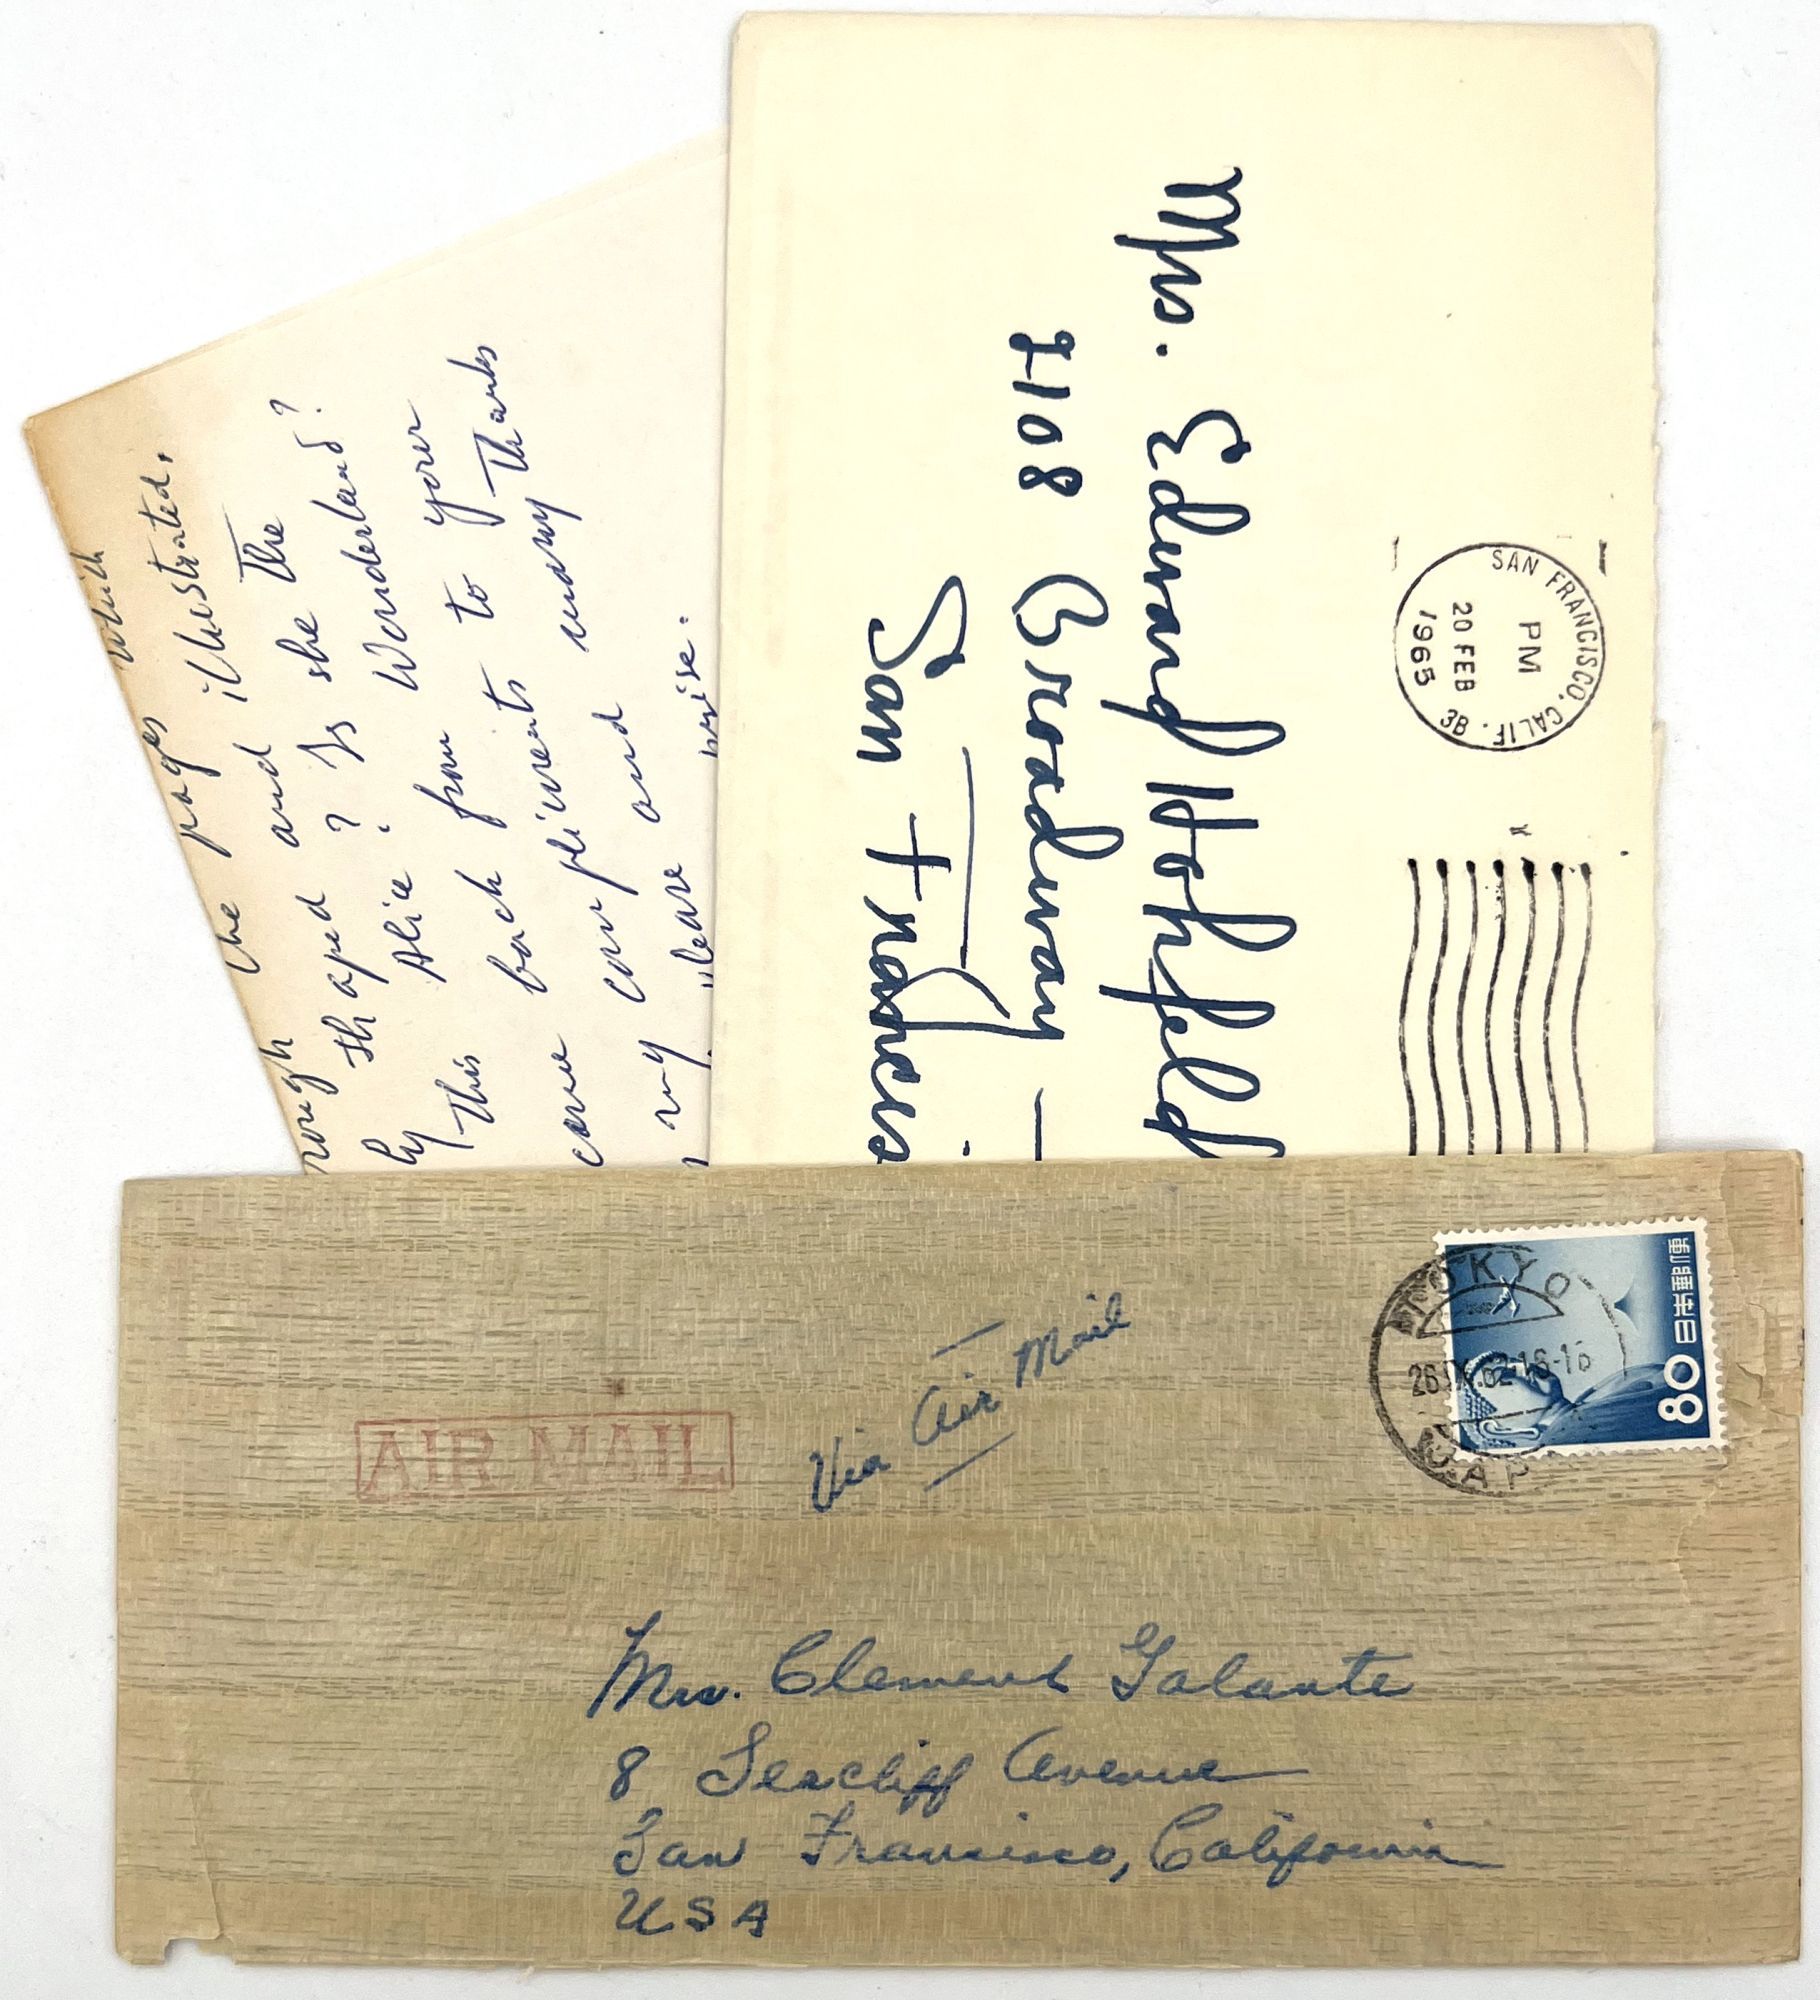 which
the pages illustrated.
and the
shaped ? Is she the
by Alice ? Wonderland?
This back from to your
come compliments to thanks
my and many
"leave
Mrs. Edward Hohfeld
2108 Broadway —
San Francis
SAN FRANCISCO, CALIF. 3B.
PM
20 FEB
1965
日本郵便
80
TOKYO
26.IX.62.16-18
JAP
AIR MAIL
Via Air Mail
Mrs. Clement Galante
8 Seacliff Avenue
San Francisco, California
USA